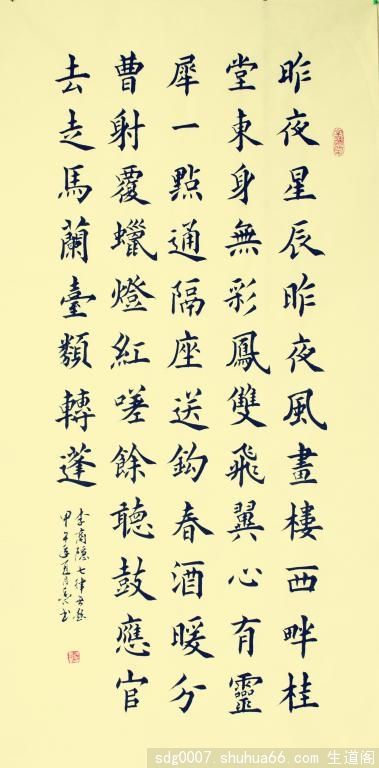 昨夜星辰昨夜風畫樓西畔桂
堂東身無彩鳳雙飛翼心有靈
犀一點通隔座送鈎春酒暖分
曹射覆蠟燈紅嗟餘聽鼓應官
去走馬蘭臺類轉蓬
李商隱七律無題
甲午年夏月書
sdg0007.shuhua66.com 生道阁